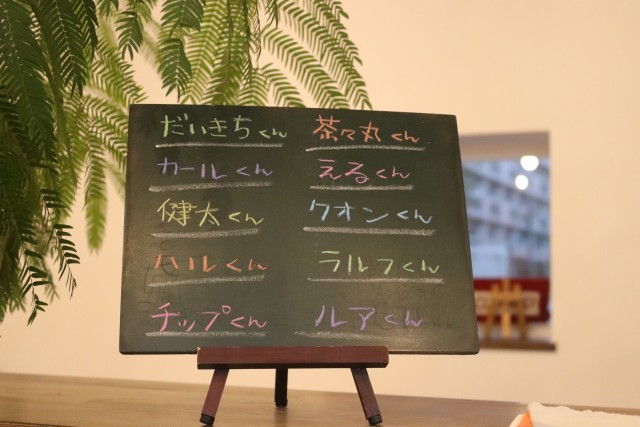 だいきちくん
カールくん
健太くん
ハルくん
チップくん
茶々丸くん
えるくん
クオンくん
ラルフくん
ルアくん